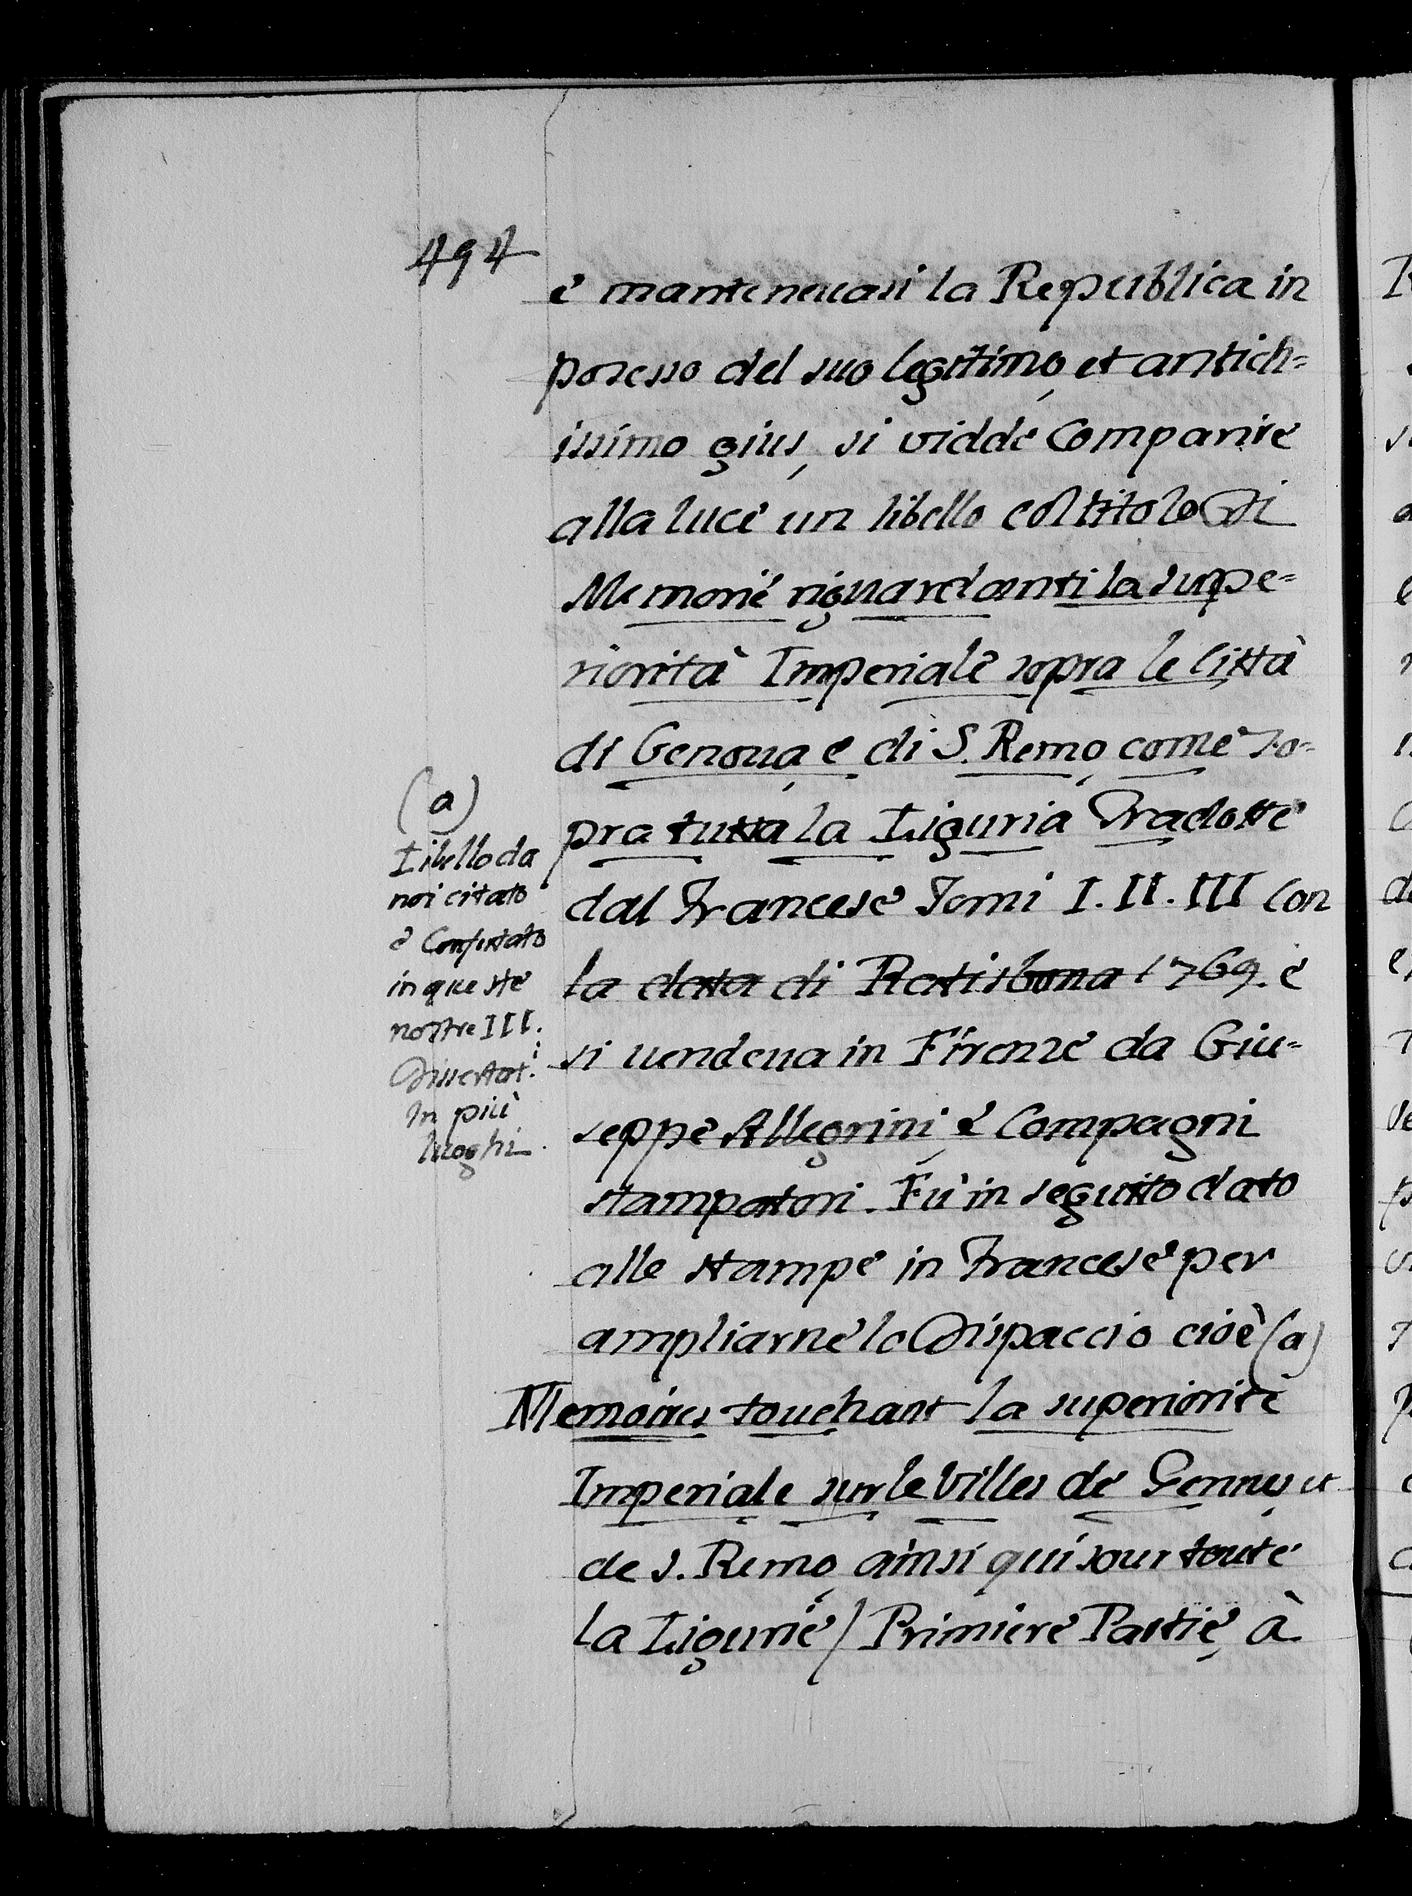 494
è manteneuasi la Republica in
posesso del suo legitimo, et antich=
issimo gius, si vidde Comparire
alla luce un libello col titolo Di
Memorie riguardanti la supe=
riorità Imperiale sopra le Città
di Genoua, e di S. Remo, come so=
pra tutta la Liguria Tradotte
dal Francese Tomi I. II. III Con
la data di Ratisbona 1769. e
si uendeua in Firenze da Giu=
seppe Allegrini, è Compagni
stampatori. Fù in seguito dato
alle stampe in Francese per
ampliarne lo Dispaccio cioè (a)
Memoires touchant la superiorite
Imperiale sur le Villes de Gennes, et
de S. Remo, ainsi qui sour toute
la Ligurie / Primiere Partie, à
(a)
Libello da
noi citato
è Confutato
in queste
nostre III.
Dissertat.i
in più
luoghi.